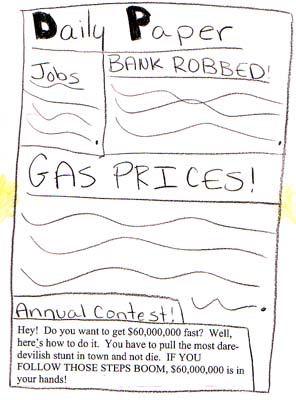 Daily Paper
Jobs
BANK ROBBED!
GAS PRICES!
Annual Contest!
Hey! Do you want to get $60,000,000 fast? Well,
here's how to do it. You have to pull the most dare-
devilish stunt in town and not die. IF YOU
FOLLOW THOSE STEPS BOOM, $60,000,000 is in
your hands!